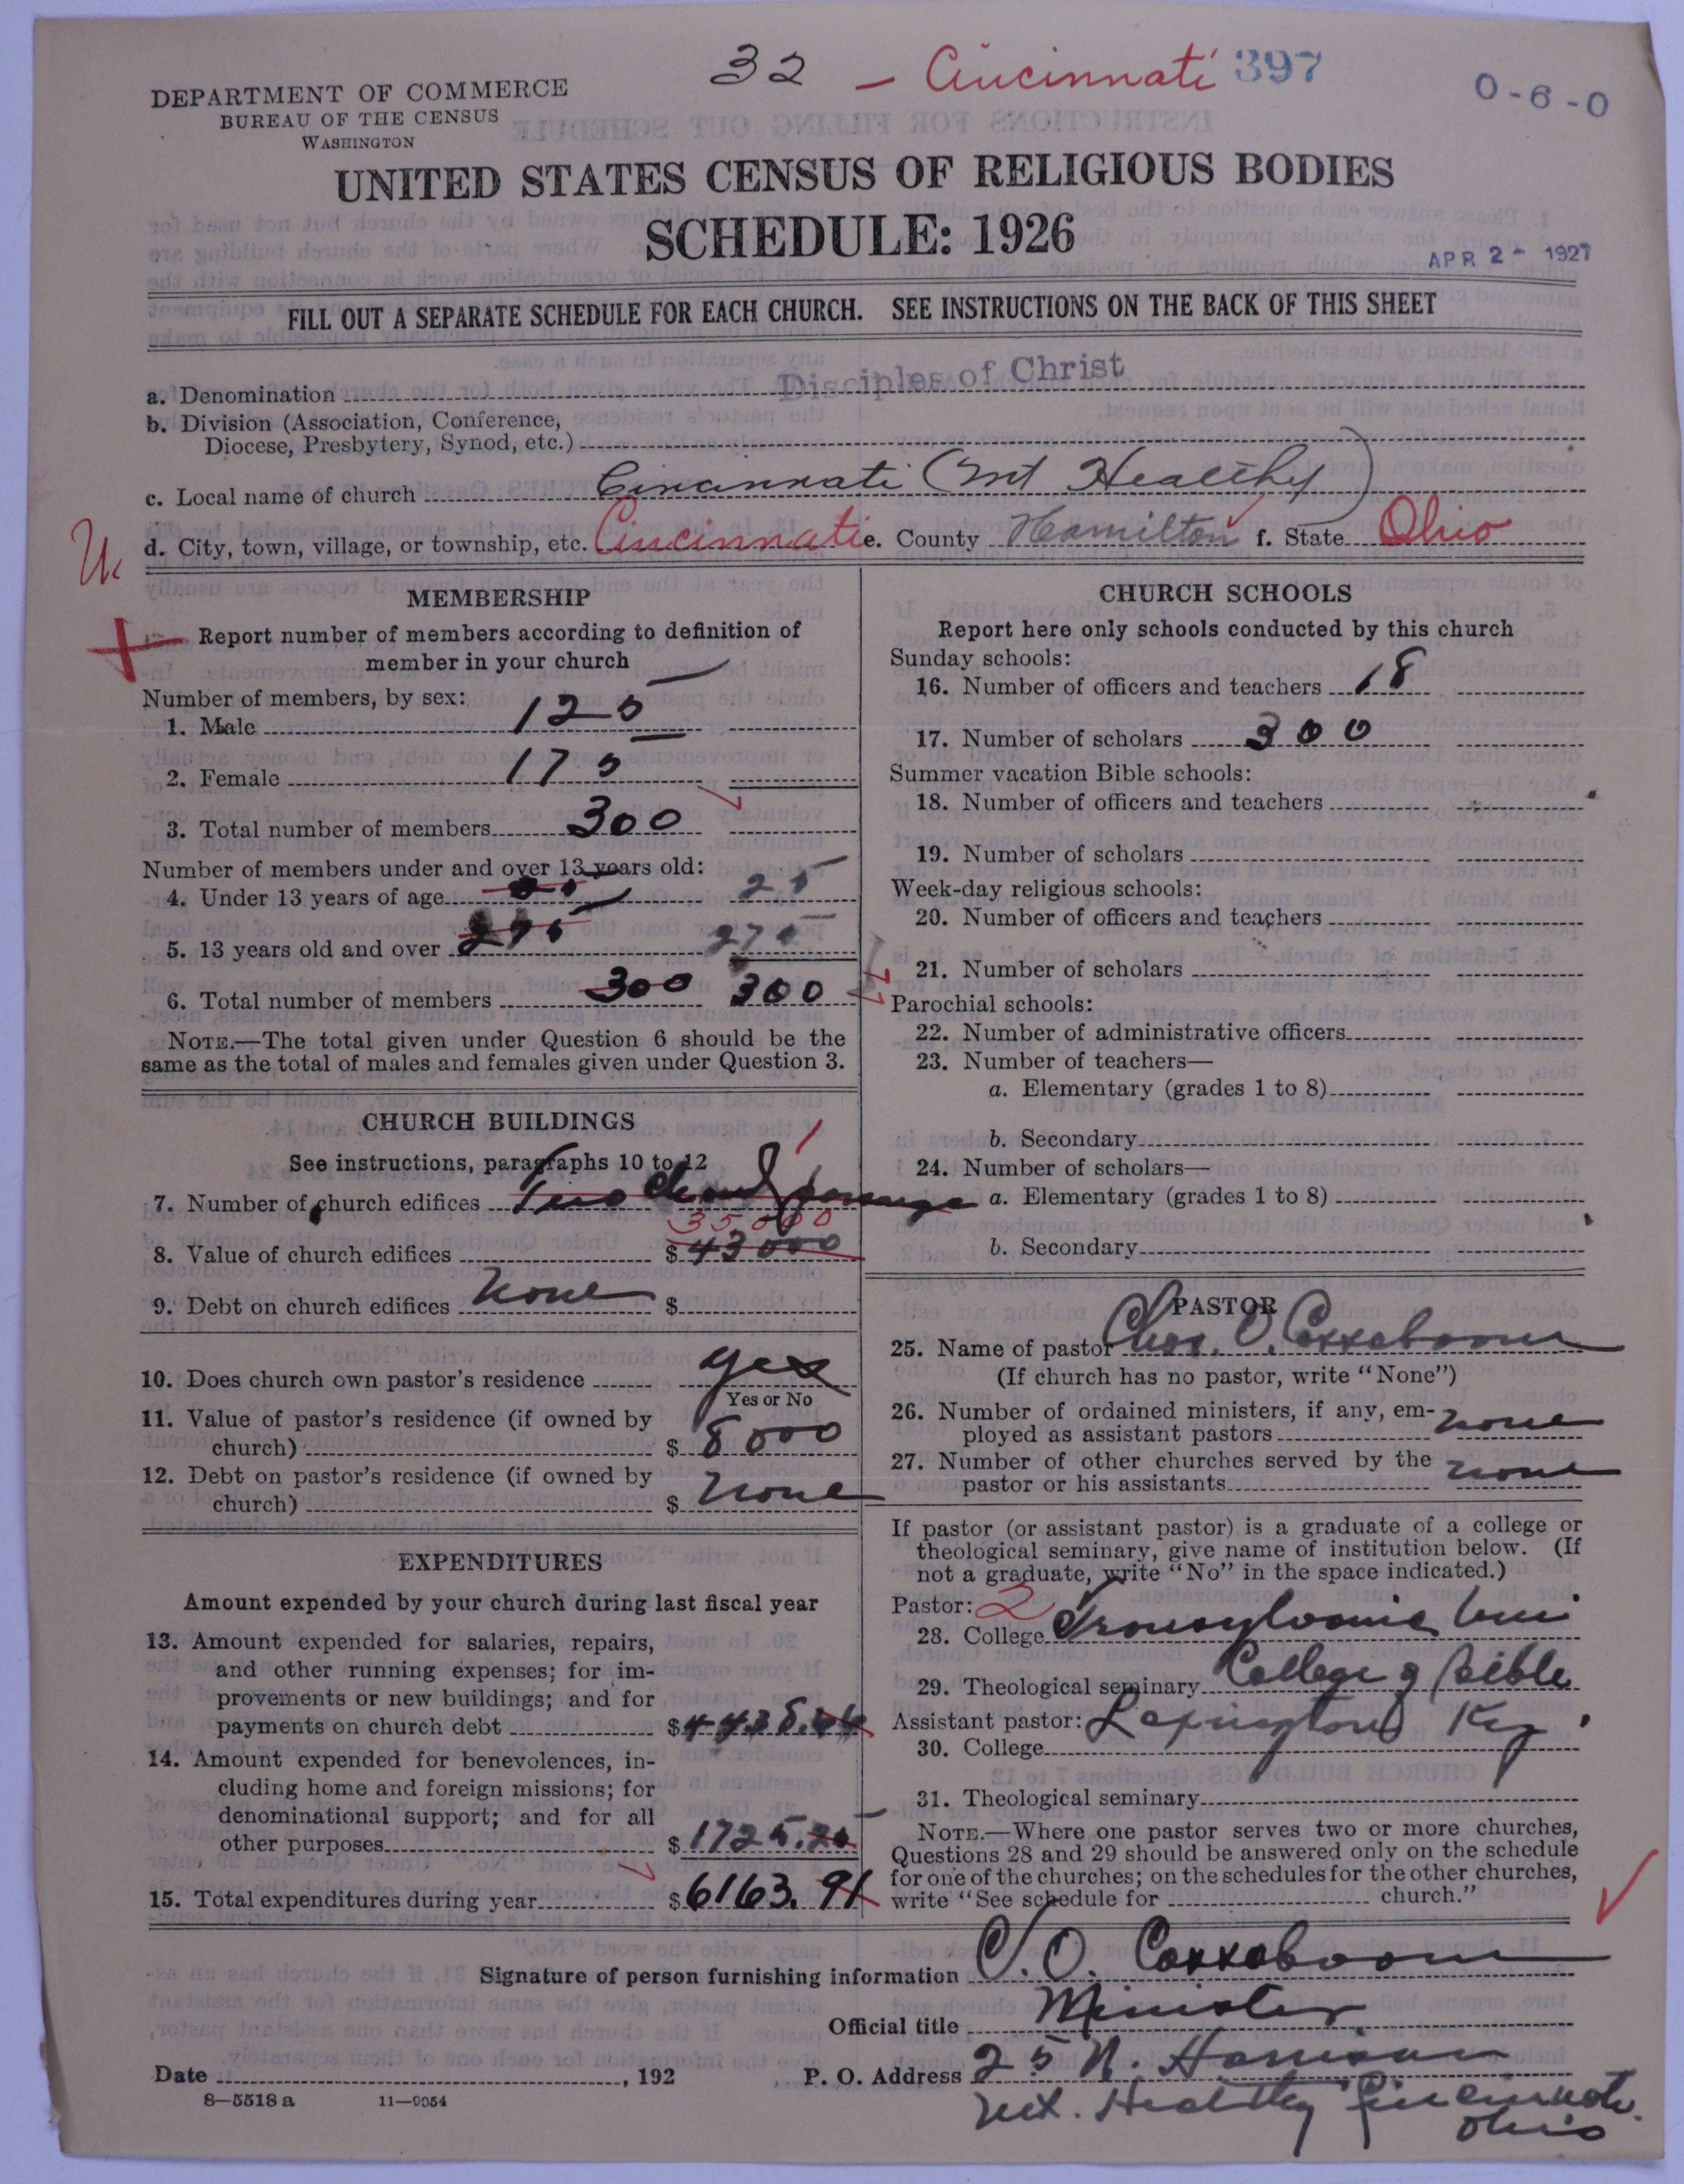 32 – Cincinnati 397
0-6-0
DEPARTMENT OF COMMERCE
BUREAU OF THE CENSUS
WASHINGTON
UNITED STATES CENSUS OF RELIGIOUS BODIES
SCHEDULE: 1926
APR 2 - 1927
FILL OUT A SEPARATE SCHEDULE FOR EACH CHURCH. SEE INSTRUCTIONS ON THE BACK OF THIS SHEET
a. Denomination Disciples of Christ
b. Division (Association, Conference,
Diocese, Presbytery, Synod, etc.)
c. Local name of church Cincinnati (Mt Healthy)
d. City, town, village, or township, etc. Cincinnati e. County Hamilton f. State Ohio
MEMBERSHIP
Report number of members according to definition of
member in your church
Number of members, by sex:
1. Male 125
2. Female 175
3. Total number of members 300
Number of members under and over 13 years old:
4. Under 13 years of age 25
5. 13 years old and over 275 275
6. Total number of members 300 300
NOTE.—The total given under Question 6 should be the
same as the total of males and females given under Question 3.
CHURCH BUILDINGS
See instructions, paragraphs 10 to 12
1
7. Number of church edifices Two Ch and parsonage
35000
8. Value of church edifices $ 43000
9. Debt on church edifices None $
10. Does church own pastor's residence yes
Yes or No
11. Value of pastor's residence (if owned by
church) $ 8000
12. Debt on pastor's residence (if owned by
church) $ None
EXPENDITURES
Amount expended by your church during last fiscal year
13. Amount expended for salaries, repairs,
and other running expenses; for im-
provements or new buildings; and for
payments on church debt $ 4438.
14. Amount expended for benevolences, in-
cluding home and foreign missions; for
denominational support; and for all
other purposes $ 1725.
15. Total expenditures during year $ 6163.91
CHURCH SCHOOLS
Report here only schools conducted by this church
Sunday schools:
16. Number of officers and teachers 18
17. Number of scholars 300
Summer vacation Bible schools:
18. Number of officers and teachers
19. Number of scholars
Week-day religious schools:
20. Number of officers and teachers
21. Number of scholars
Parochial schools:
22. Number of administrative officers
23. Number of teachers—
a. Elementary (grades 1 to 8)
b. Secondary
24. Number of scholars—
a. Elementary (grades 1 to 8)
b. Secondary
PASTOR
25. Name of pastor Chas. O. Cossaboom
(If church has no pastor, write "None")
26. Number of ordained ministers, if any, em-
ployed as assistant pastors none
27. Number of other churches served by the
pastor or his assistants none
If pastor (or assistant pastor) is a graduate of a college or
theological seminary, give name of institution below. (If
not a graduate, write "No" in the space indicated.)
Pastor: 2
28. College Transylvania Uni
29. Theological seminary College of Bible
Assistant pastor: Lexington Ky.
30. College
31. Theological seminary
NOTE.—Where one pastor serves two or more churches,
Questions 28 and 29 should be answered only on the schedule
for one of the churches; on the schedules for the other churches,
write "See schedule for church."
Signature of person furnishing information C. O. Cossaboom
Official title Minister
Date , 192
P. O. Address 25 N. Harrison
Mt. Healthy Cincinnati.
Ohio
8—5518a 11—9054